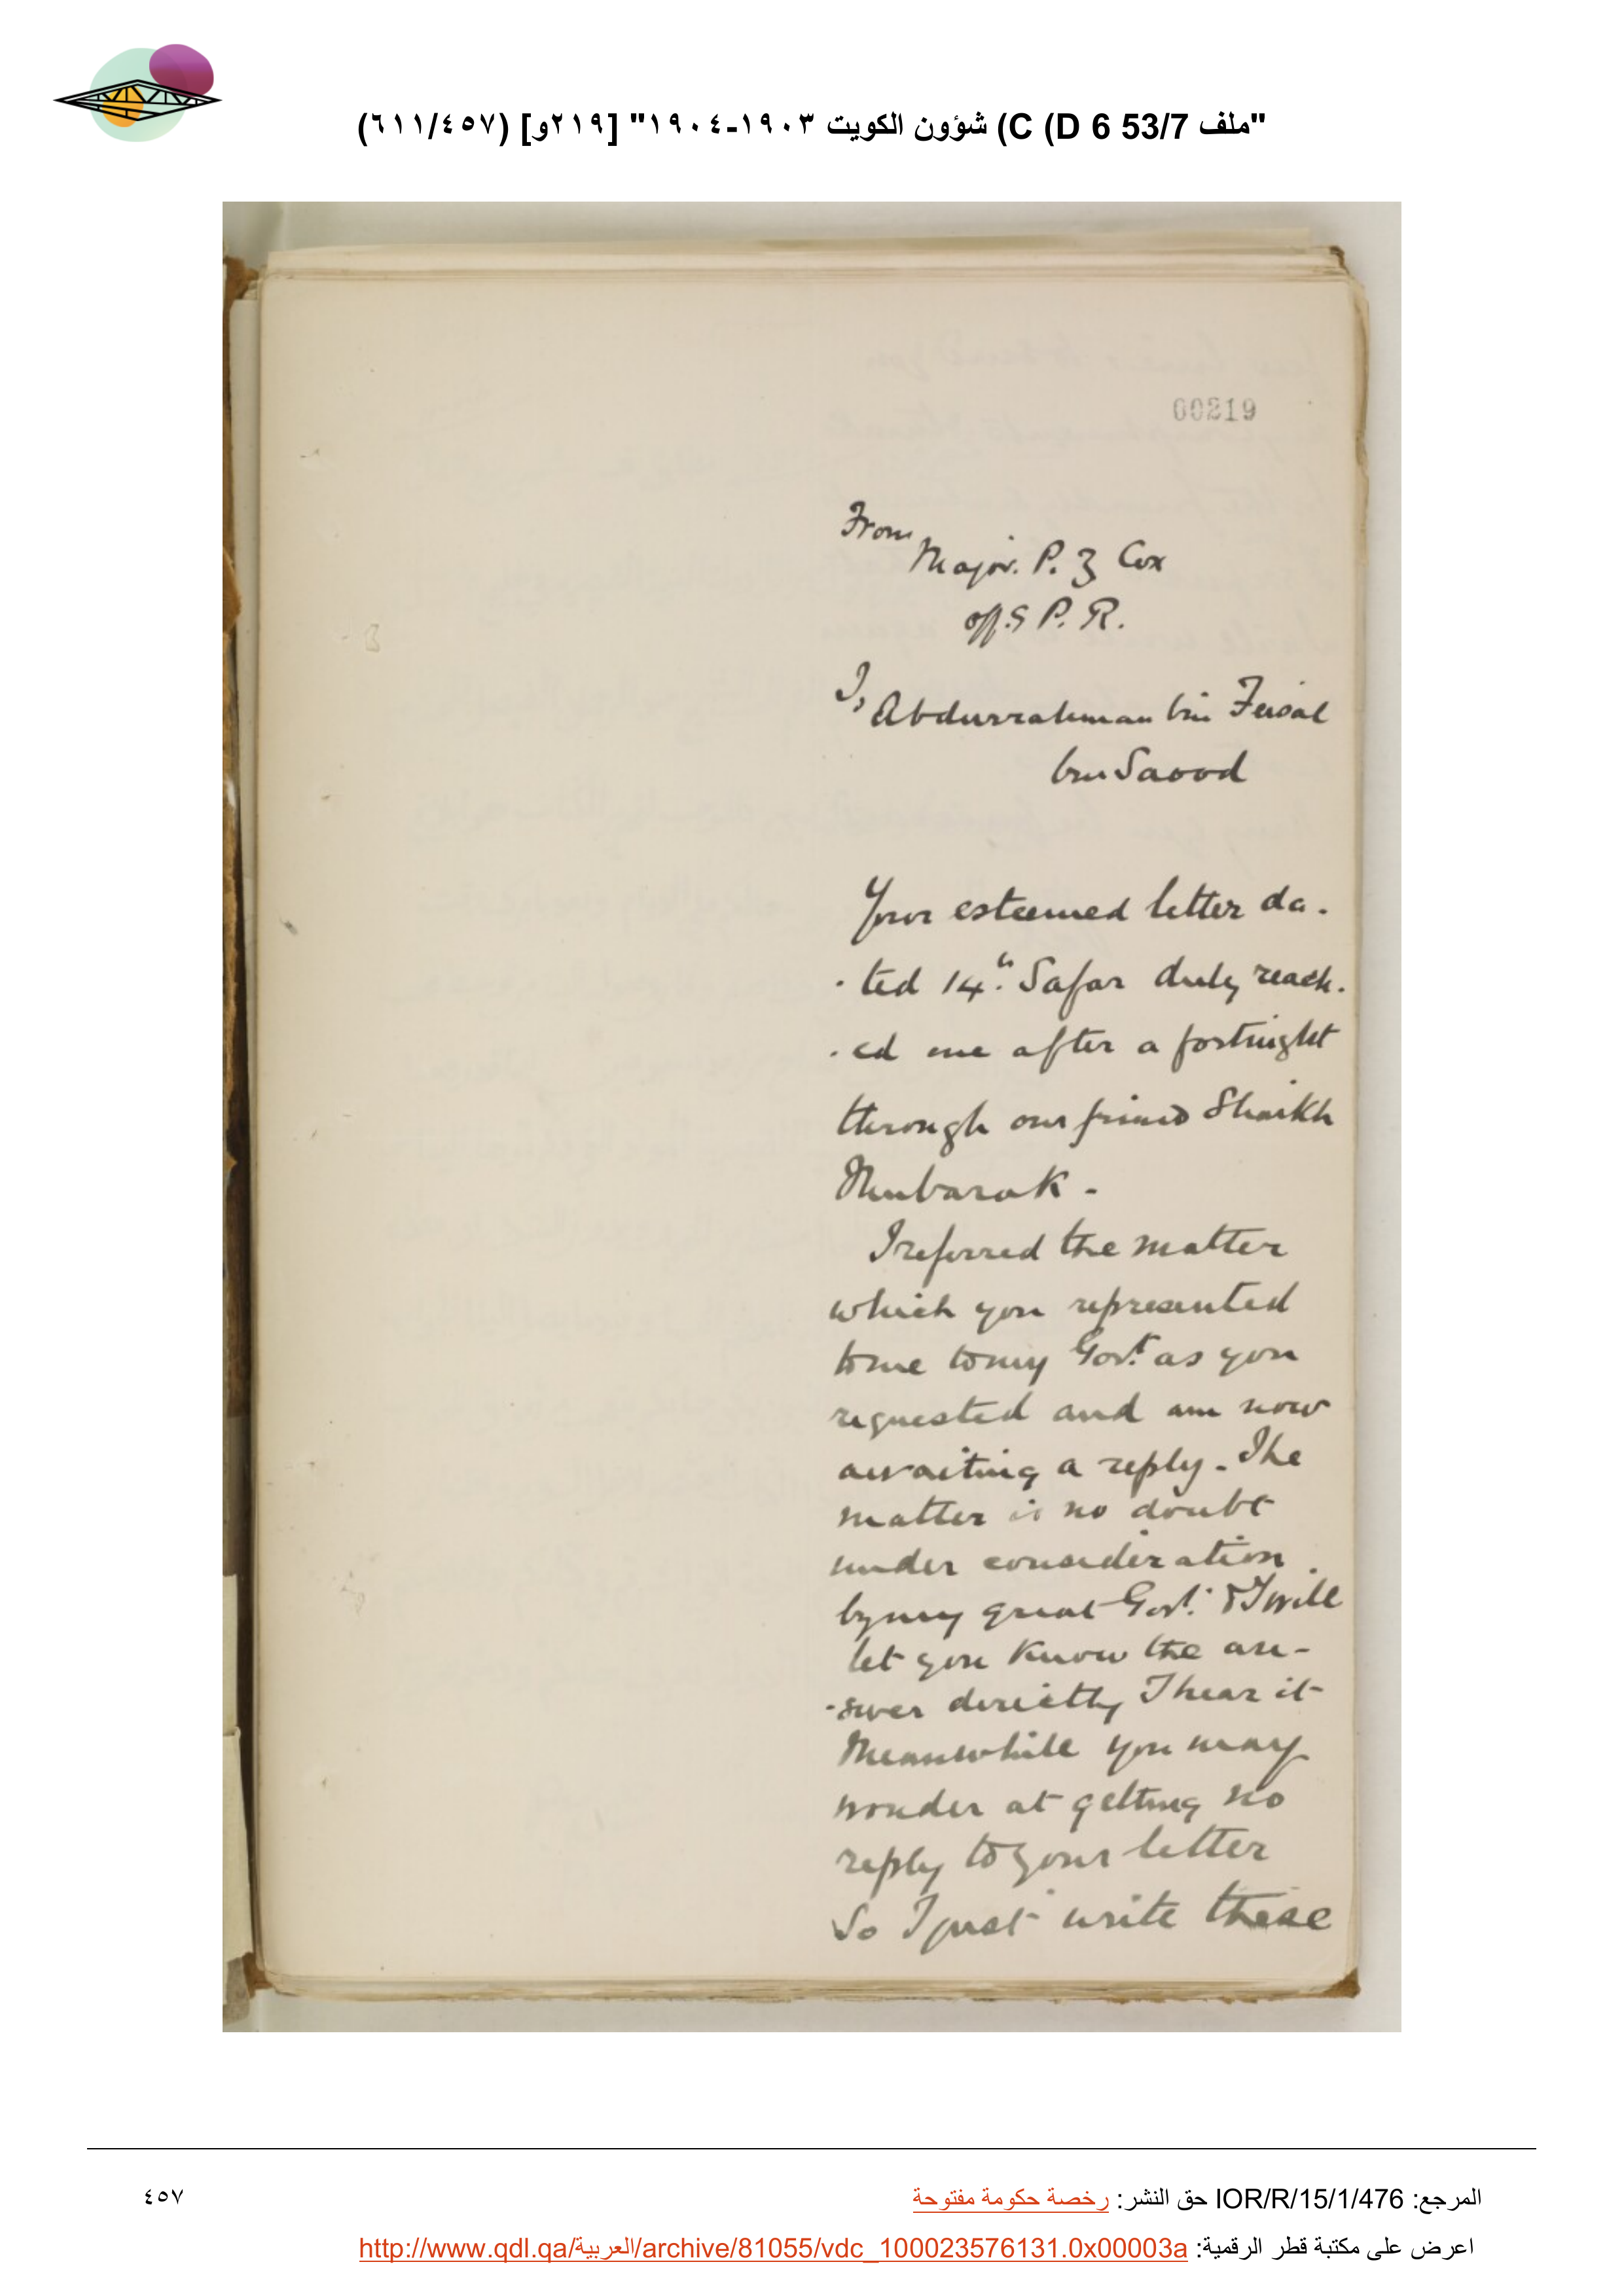 "ملف 53/7 C (D 6) شؤون الكويت ١٩٠٣-١٩٠٤" [٢١٩و] (٦١١/٤٥٧)
00219
From
Major. P. Z Cox
offg P. R.
To
Abdurrahman bin Feisal
bin Saood
Your esteemed letter da-
-ted 14th Safar duly reach-
-ed me after a fortnight
through our friend Shaikh
Mubarak -
I referred the matter
which you represented
to me to my Govt. as you
requested and am now
awaiting a reply. The
matter is no doubt
under consideration
by my great Govt. & I will
let you know the an-
-swer directly I hear it
Meanwhile you may
wonder at getting no
reply to your letter
So I just write these
المرجع: IOR/R/15/1/476 حق النشر: رخصة حكومة مفتوحة
٤٥٧
اعرض على مكتبة قطر الرقمية: http://www.qdl.qa/العربية/archive/81055/vdc_100023576131.0x00003a